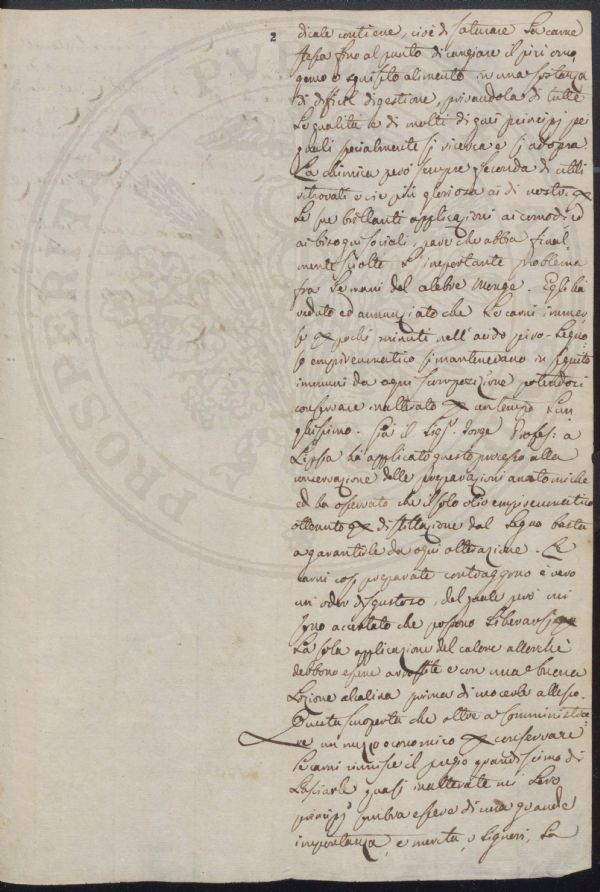 2
dicale contiene, cioè di saturare la carne
stessa fino al punto di cangiare il più omo
geneo e squisito alimento in una sostanza
di difficil digestione, privandola di tutte
le qualità e di molti di quei principj pei
quali specialmente si ricerca e si adopra.
La chimica però sempre feconda di utili
ritrovati e vie più gloriosa ai dì nostri
le sue brillanti applicazioni ai comodi ed
ai bisogni sociali, pare che abbia final
mente sciolto l'importante problema
fra le mani del celebre Monge. Egli ha
veduto ed annunziato che le carni immer
se pochi minuti nell'acido piro-legno
so empireumatico si mantenevano in seguito
immuni da ogni scomposizione potendosi
conservare inalterate un tempo lun
ghissimo. Già il Sigr. Jorge Profes: a
Lipsia ha applicato questo processo alla
conservazione delle preparazioni anatomiche
ed ha osservato che il solo olio empireumatico
ottenuto distillazione dal legno basta
a garantirle da ogni alterazione. Le
carni così preparate contraggono è vero
un odor disgustoso, del quale però mi
sono accertato che possono liberarsi
la sola applicazione del calore allerchè
debbono essere arrostite e con una buona
lozione alcalina prima di cuocerle allesso.
Questa scoperta che oltre a somministra-
re un mezzo economico conservare
le carni riunisce il pregio grandissimo di
lasciarle quasi inalterate nei loro
principj sembra essere di una grande
importanza, e merita, o Signori, la
PROSPERITATI PVB